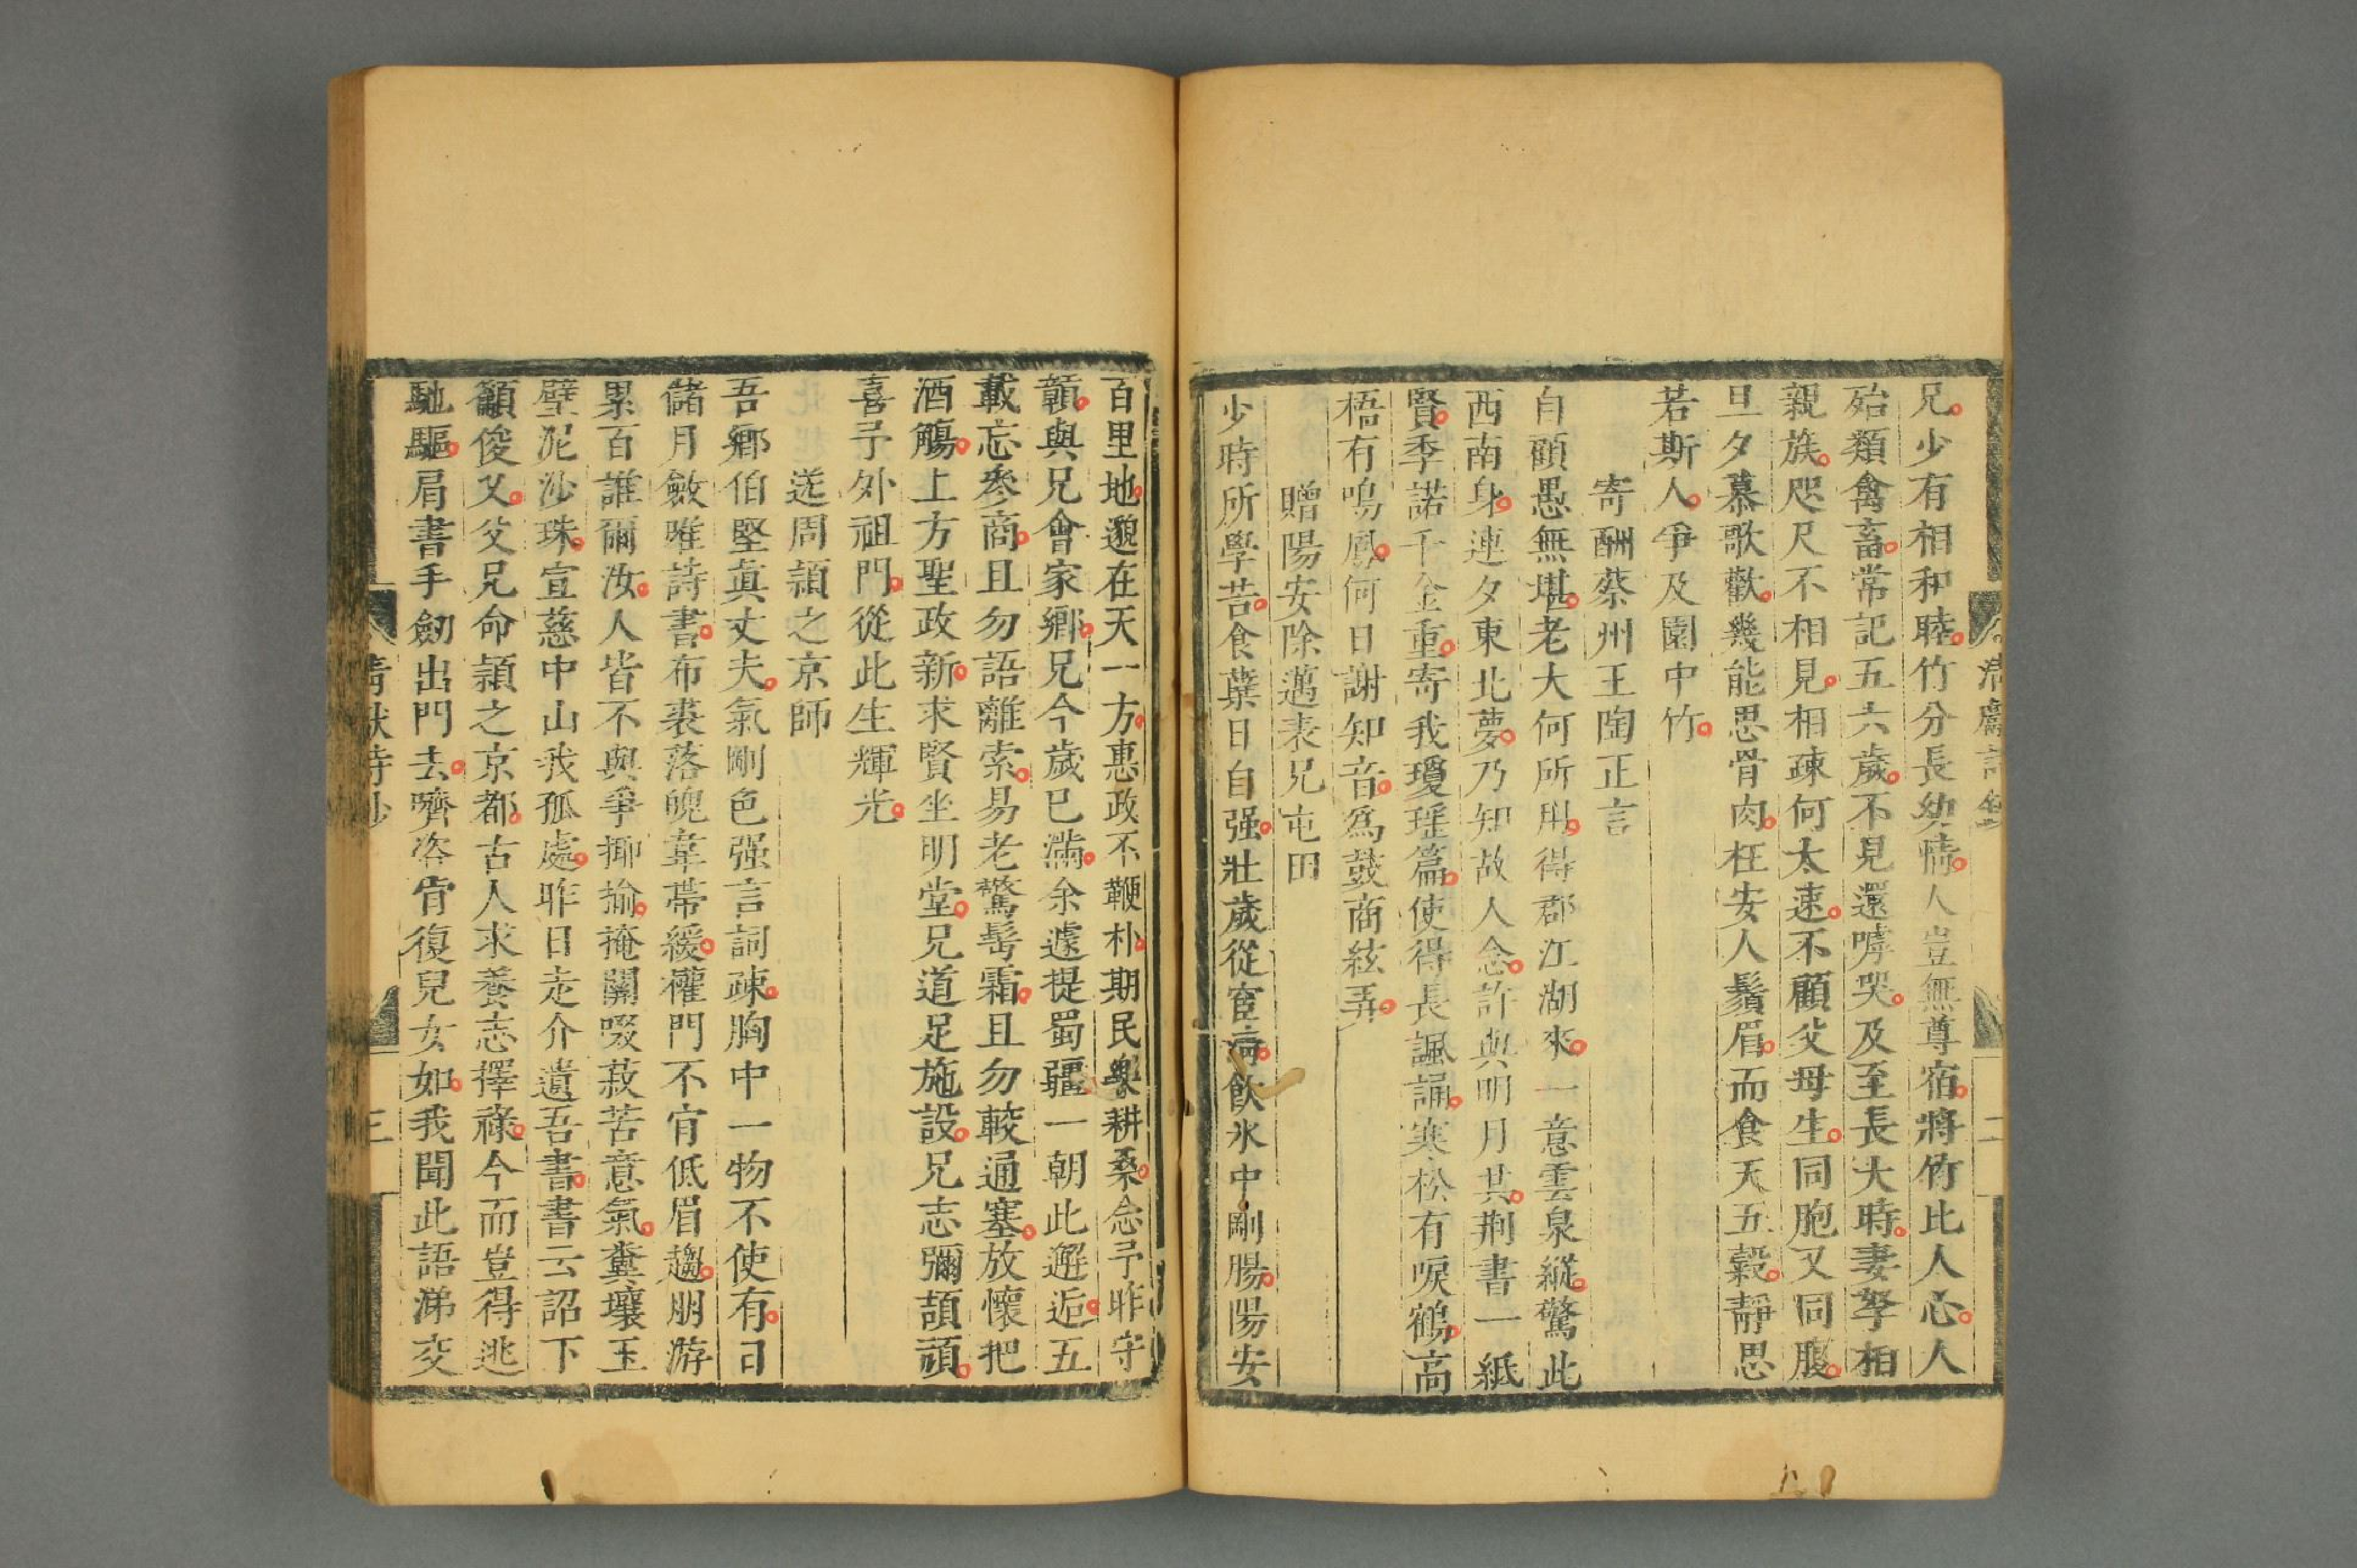 清獻詩鈔
二
兄少有相和睦竹分長幼情人豈無尊宿將竹比人心人
殆類禽畜常記五六歲不見還嘑哭及至長大時妻孥相
親族咫尺不相見相疎何太速不顧父母生同胞又同腹
旦夕慕歌歡幾能思骨肉枉安人鬚眉而食天五穀靜思
若斯人爭及園中竹
寄酬蔡州王陶正言
自顧愚無堪老大何所用得郡江湖來一意雲泉縱驚此
西南身連夕東北夢乃知故人念許與明月共荆書一紙
賢季諾千金重寄我瓊瑶篇使得長諷誦寒松有唳鶴高
梧有鳴鳳何日謝知音爲鼓商絃弄
贈陽安除邁表兄屯田
少時所學苦食蘗日自强壯歲從宦游飲氷中剛腸陽安
百里地邈在天一方惠政不鞭朴期民樂耕桑念予昨守
贑與兄會家鄉兄今歲已滿余遽提蜀疆一朝此邂逅五
載忘參商且勿語離索易老驚髩霜且勿較通塞放懷把
酒觴上方聖政新求賢坐明堂兄道足施設兄志彌頡頏
喜予外祖門從此生輝光
送周頴之京師
吾鄉伯堅眞丈夫氣剛色强言詞疎胸中一物不使有日
儲月斂唯詩書布裘落魄韋帶緩權門不肯低眉趨朋游
累百誰爾汝人皆不與爭揶揄掩關啜菽苦意氣糞壤玉
璧泥沙珠宣慈中山我孤處昨日走介遺吾書書云詔下
籲俊乂父兄命頴之京都古人求養志擇祿今而豈得逃
馳驅肩書手劒出門去嚌咨肯復兒女如我聞此語涕交
清獻詩鈔
三